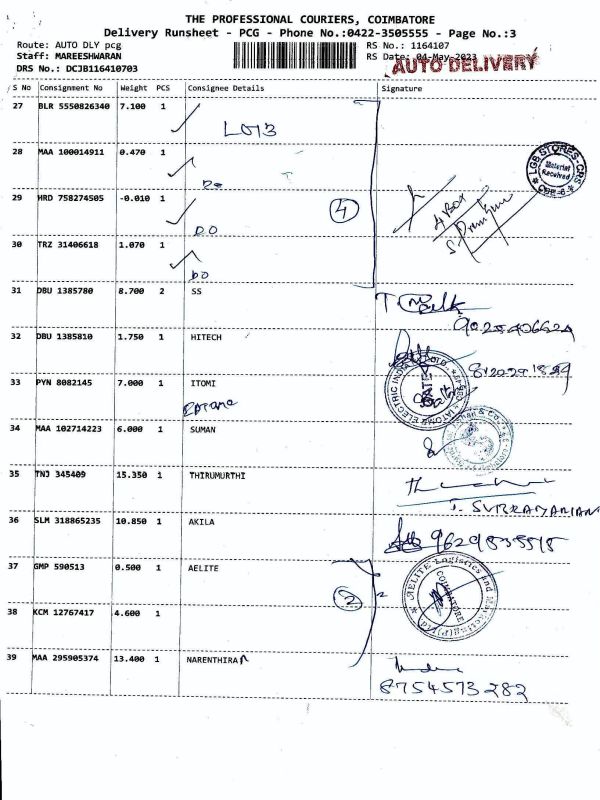 THE PROFESSIONAL COURIERS, COIMBATORE
Delivery Runsheet - PCG - Phone No.:0422-3505555 - Page No.:3
Route: AUTO DLY pcg RS No.: 1164107
Staff: MAREESHWARAN RS Date: 04-May-2023
AUTO DELIVERY
DRS No.: DCJB116410703
S No Consignment No Weight PCS Consignee Details Signature
27 BLR 5550826340 7.100 1
28 MAA 100014911 0.470 1
LGB STORES-CRS
Material Received
Do
29 HRD 758274505 -0.010 1
4
4 Box
DO
30 TRZ 31406618 1.070 1
DO
31 DBU 1385780 8.700 2 SS
32 DBU 1385810 1.750 1 HITECH
33 PYN 8082145 7.000 1 ITOMI
34 MAA 102714223 6.000 1 SUMAN
35 TNJ 345409 15.350 1 THIRUMURTHI
36 SLM 318865235 10.850 1 AKILA
9629835515
37 GMP 590513 0.500 1 AELITE
2
AELITE Logistics and Marketing(P)Ltd
COIMBATORE
38 KCM 12767417 4.600 1
39 MAA 295905374 13.400 1 NARENTHIRA
8754573282